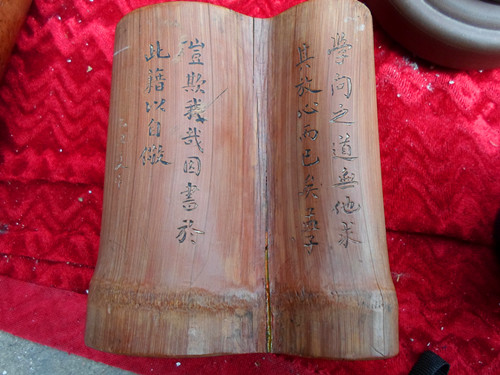 學问之道無他求
其放心而已矣孟子
豈欺我哉因書於
此藉以自儆